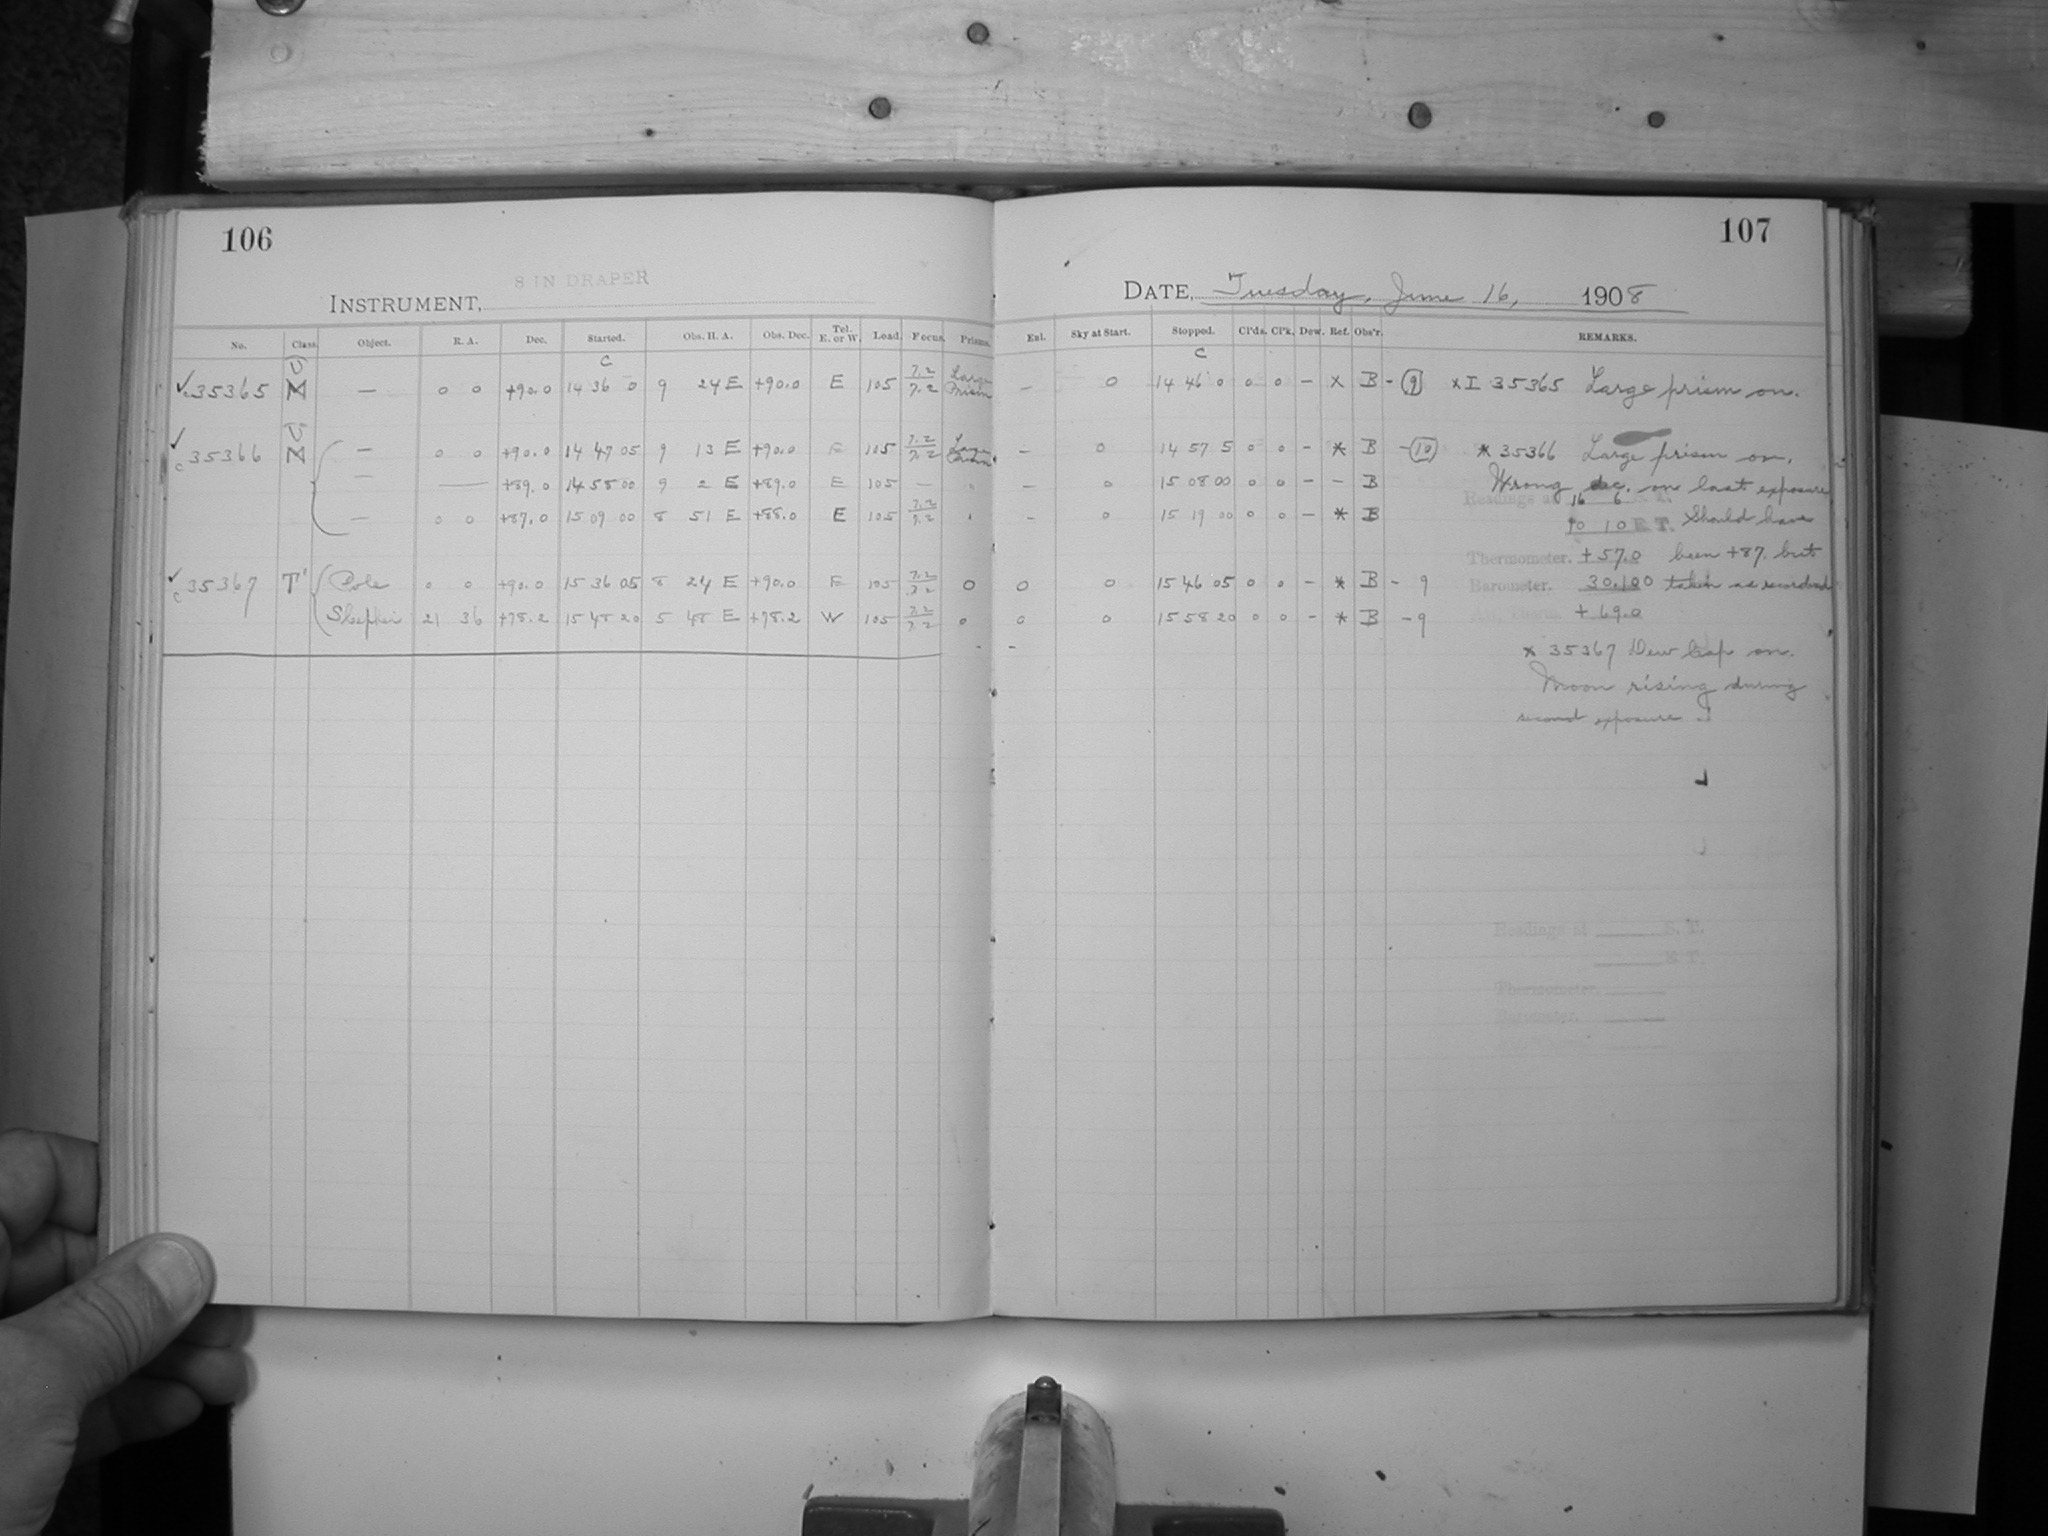 106
8 IN DRAPER
INSTRUMENT,
No. Class. Object. R. A. Dec. Started. Obs. H. A. Obs. Dec. Tel. E. or W. Load. Focus. Prisms.
C
✓c35365 N — 0 0 +90.0 14 36 0 9 24 E +90.0 E 105 7.2/7.2 Large Prism
✓c35366 N — 0 0 +90.0 14 47 05 9 13 E +90.0 E 105 7.2/7.2 Large Prism
— — +89.0 14 58 00 9 2 E +89.0 E 105 — "
— 0 0 +87.0 15 09 00 8 51 E +88.0 E 105 7.2/7.2 "
✓c35367 T' Pole 0 0 +90.0 15 36 05 8 24 E +90.0 E 105 7.2/7.2 0
21 36 +78.2 15 48 20 5 48 E +78.2 W 105 7.2/7.2 0
107
DATE, Tuesday, June 16, 1908
Enl. Sky at Start. Stopped. Cl'ds. Cl'k. Dew. Ref. Obs'r. REMARKS.
C
— 0 14 46 0 0 0 — x B - 9 x I 35365 Large prism on.
— 0 14 57 5 0 0 — * B - 10 * 35366 Large prism on.
— 0 15 08 00 0 0 — — B Wrong dec. on last exposure
Readings at 16 6 S. T.
— 0 15 19 00 0 0 — * B 10 10 E. T. Should have
Thermometer. +57.0 been +87. but
0 0 15 46 05 0 0 — * B - 9 Barometer. 30.100 taken as recorded
0 0 15 58 20 0 0 — * B - 9 +69.0
* 35367 Dew Cap on.
Moon rising during
second exposure.
Readings at S. T.
E. T.
Thermometer.
Barometer.